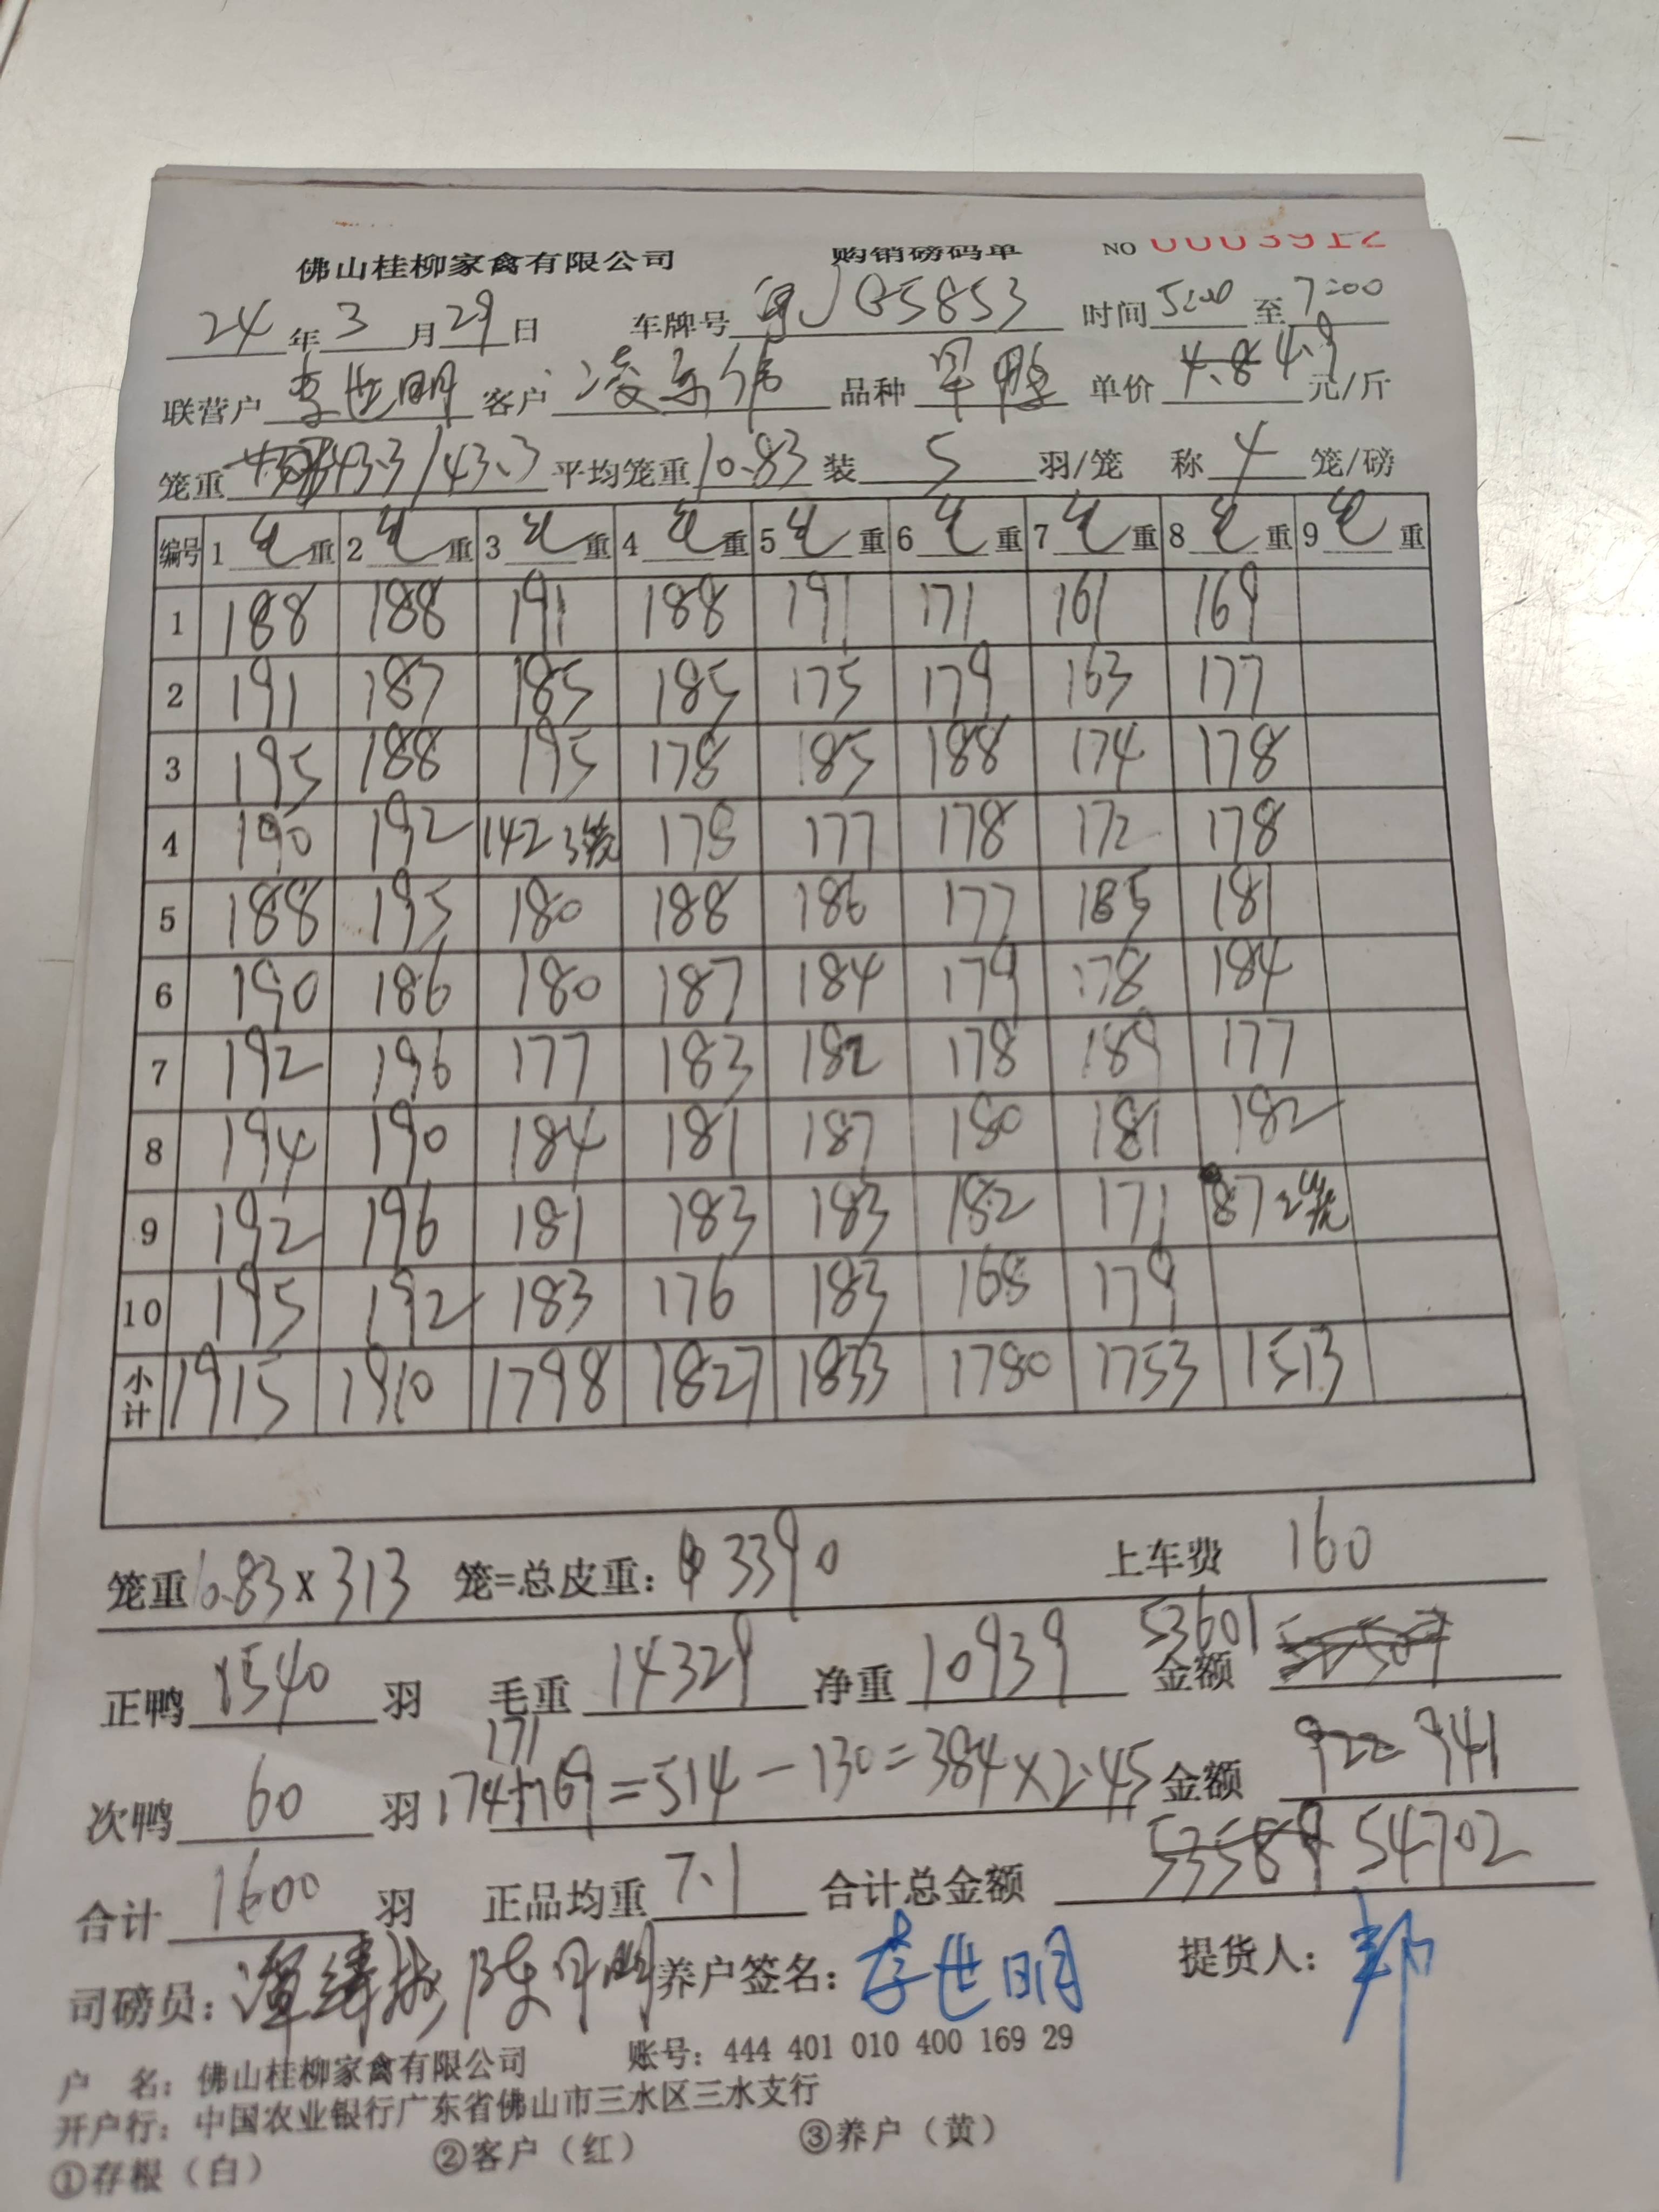 佛山桂柳家禽有限公司 购销磅码单 NO 0003912
24年3月29日 车牌号 粤J G5853 时间 5:00 至 7:00
联营户 李世明 客户 凌 品种 旱鸭 单价 4.8 4.9 元/斤
笼重 43.3/43.3 平均笼重 10.83 装 5 羽/笼 称 4 笼/磅
编号 1 毛重 2 毛重 3 毛重 4 毛重 5 毛重 6 毛重 7 毛重 8 毛重 9 毛重
1 188 188 191 188 191 171 161 169
2 191 187 185 185 175 179 163 177
3 195 188 195 178 185 188 174 178
4 190 192 142 3笼 178 177 178 172 178
5 188 195 180 188 186 177 185 181
6 190 186 180 187 184 179 178 184
7 192 196 177 183 182 178 189 177
8 194 190 184 181 187 180 181 182
9 192 196 181 183 183 182 171 87 2笼
10 195 192 183 176 183 168 179
小计 1915 1910 1798 1827 1833 1780 1753 1513
笼重 10.83 X 313 笼=总皮重: 3390 上车费 160
正鸭 1540 羽 毛重 14329 净重 10939 金额 53601
次鸭 60 羽 171 174+169=514-130=384×2.45 金额 922 941
合计 1600 羽 正品均重 7.1 合计总金额 53589 54702
司磅员: 养户签名: 李世明 提货人: 邦
户 名: 佛山桂柳家禽有限公司 账号: 444 401 010 400 169 29
开户行: 中国农业银行广东省佛山市三水区三水支行
①存根（白） ②客户（红） ③养户（黄）